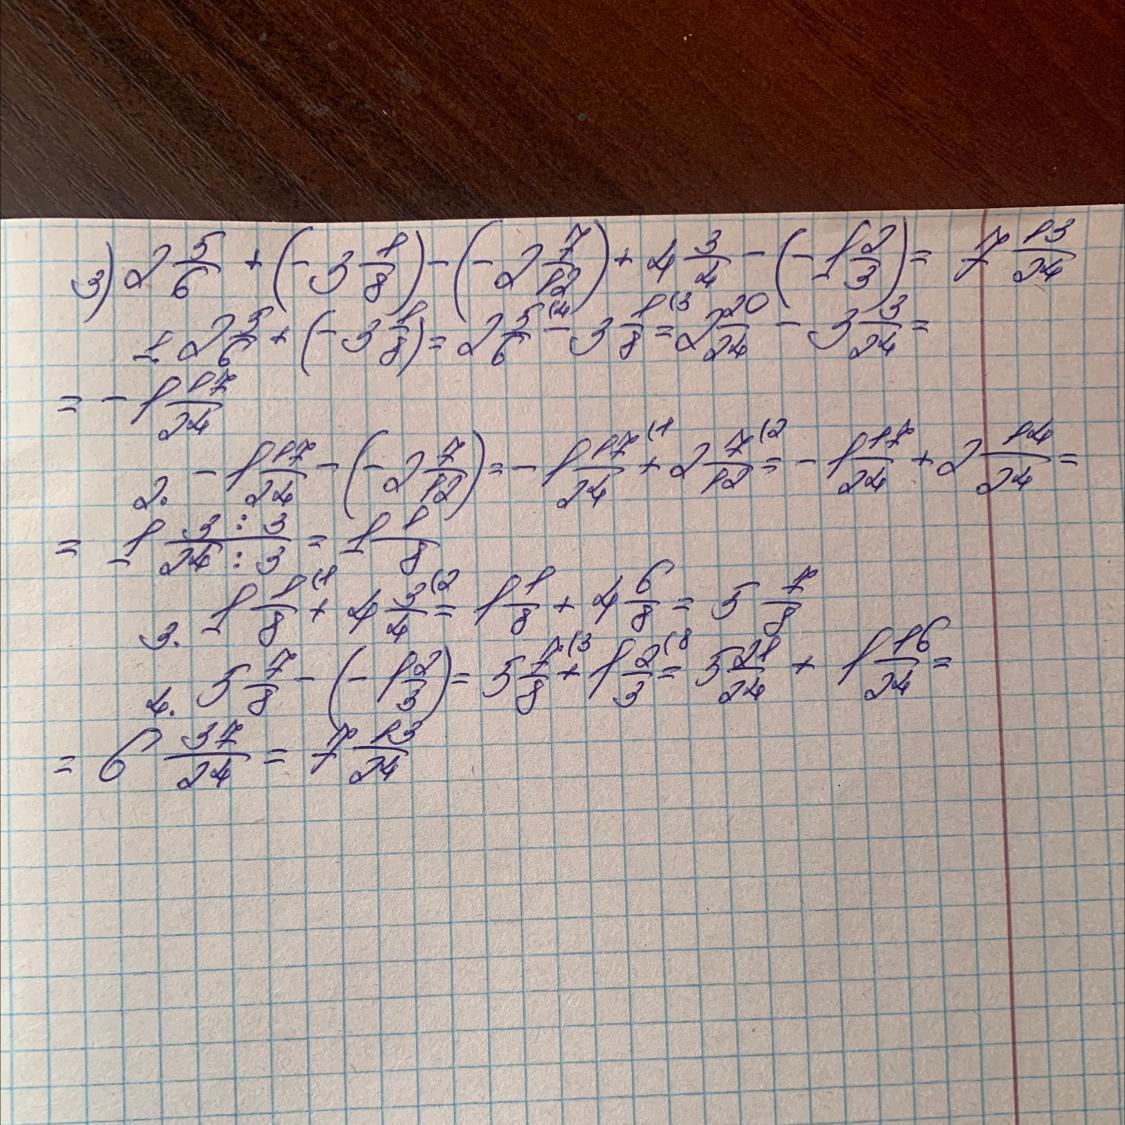 3) 2 5/6 + (-3 1/8) - (-2 7/12) + 4 3/4 - (-1 2/3) = 7 13/24
1. 2 5/6 + (-3 1/8) = 2 5/6 (4 - 3 1/8 (3 = 2 20/24 - 3 3/24 =
= - 1 17/24
2. - 1 17/24 - (-2 7/12) = - 1 17/24 (1 + 2 7/12 (2 = - 1 17/24 + 2 14/24 =
= 1 3:3/24:3 = 1 1/8
3. 1 1/8 (1 + 4 3/4 (2 = 1 1/8 + 4 6/8 = 5 7/8
4. 5 7/8 - (-1 2/3) = 5 7/8 (3 + 1 2/3 (8 = 5 21/24 + 1 16/24 =
= 6 37/24 = 7 13/24